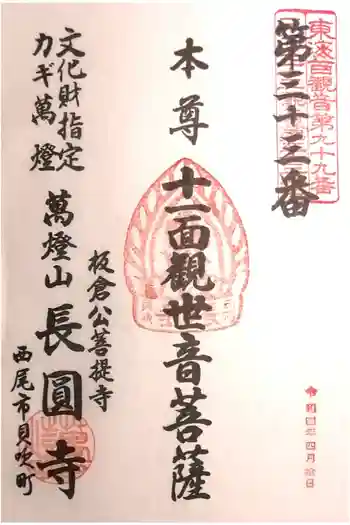 東海百観音第九十九番
第三十三番
本尊 十一面観世音菩薩
文化財指定
カギ萬燈
板倉公菩提寺
萬燈山 長圓寺
西尾市貝吹町